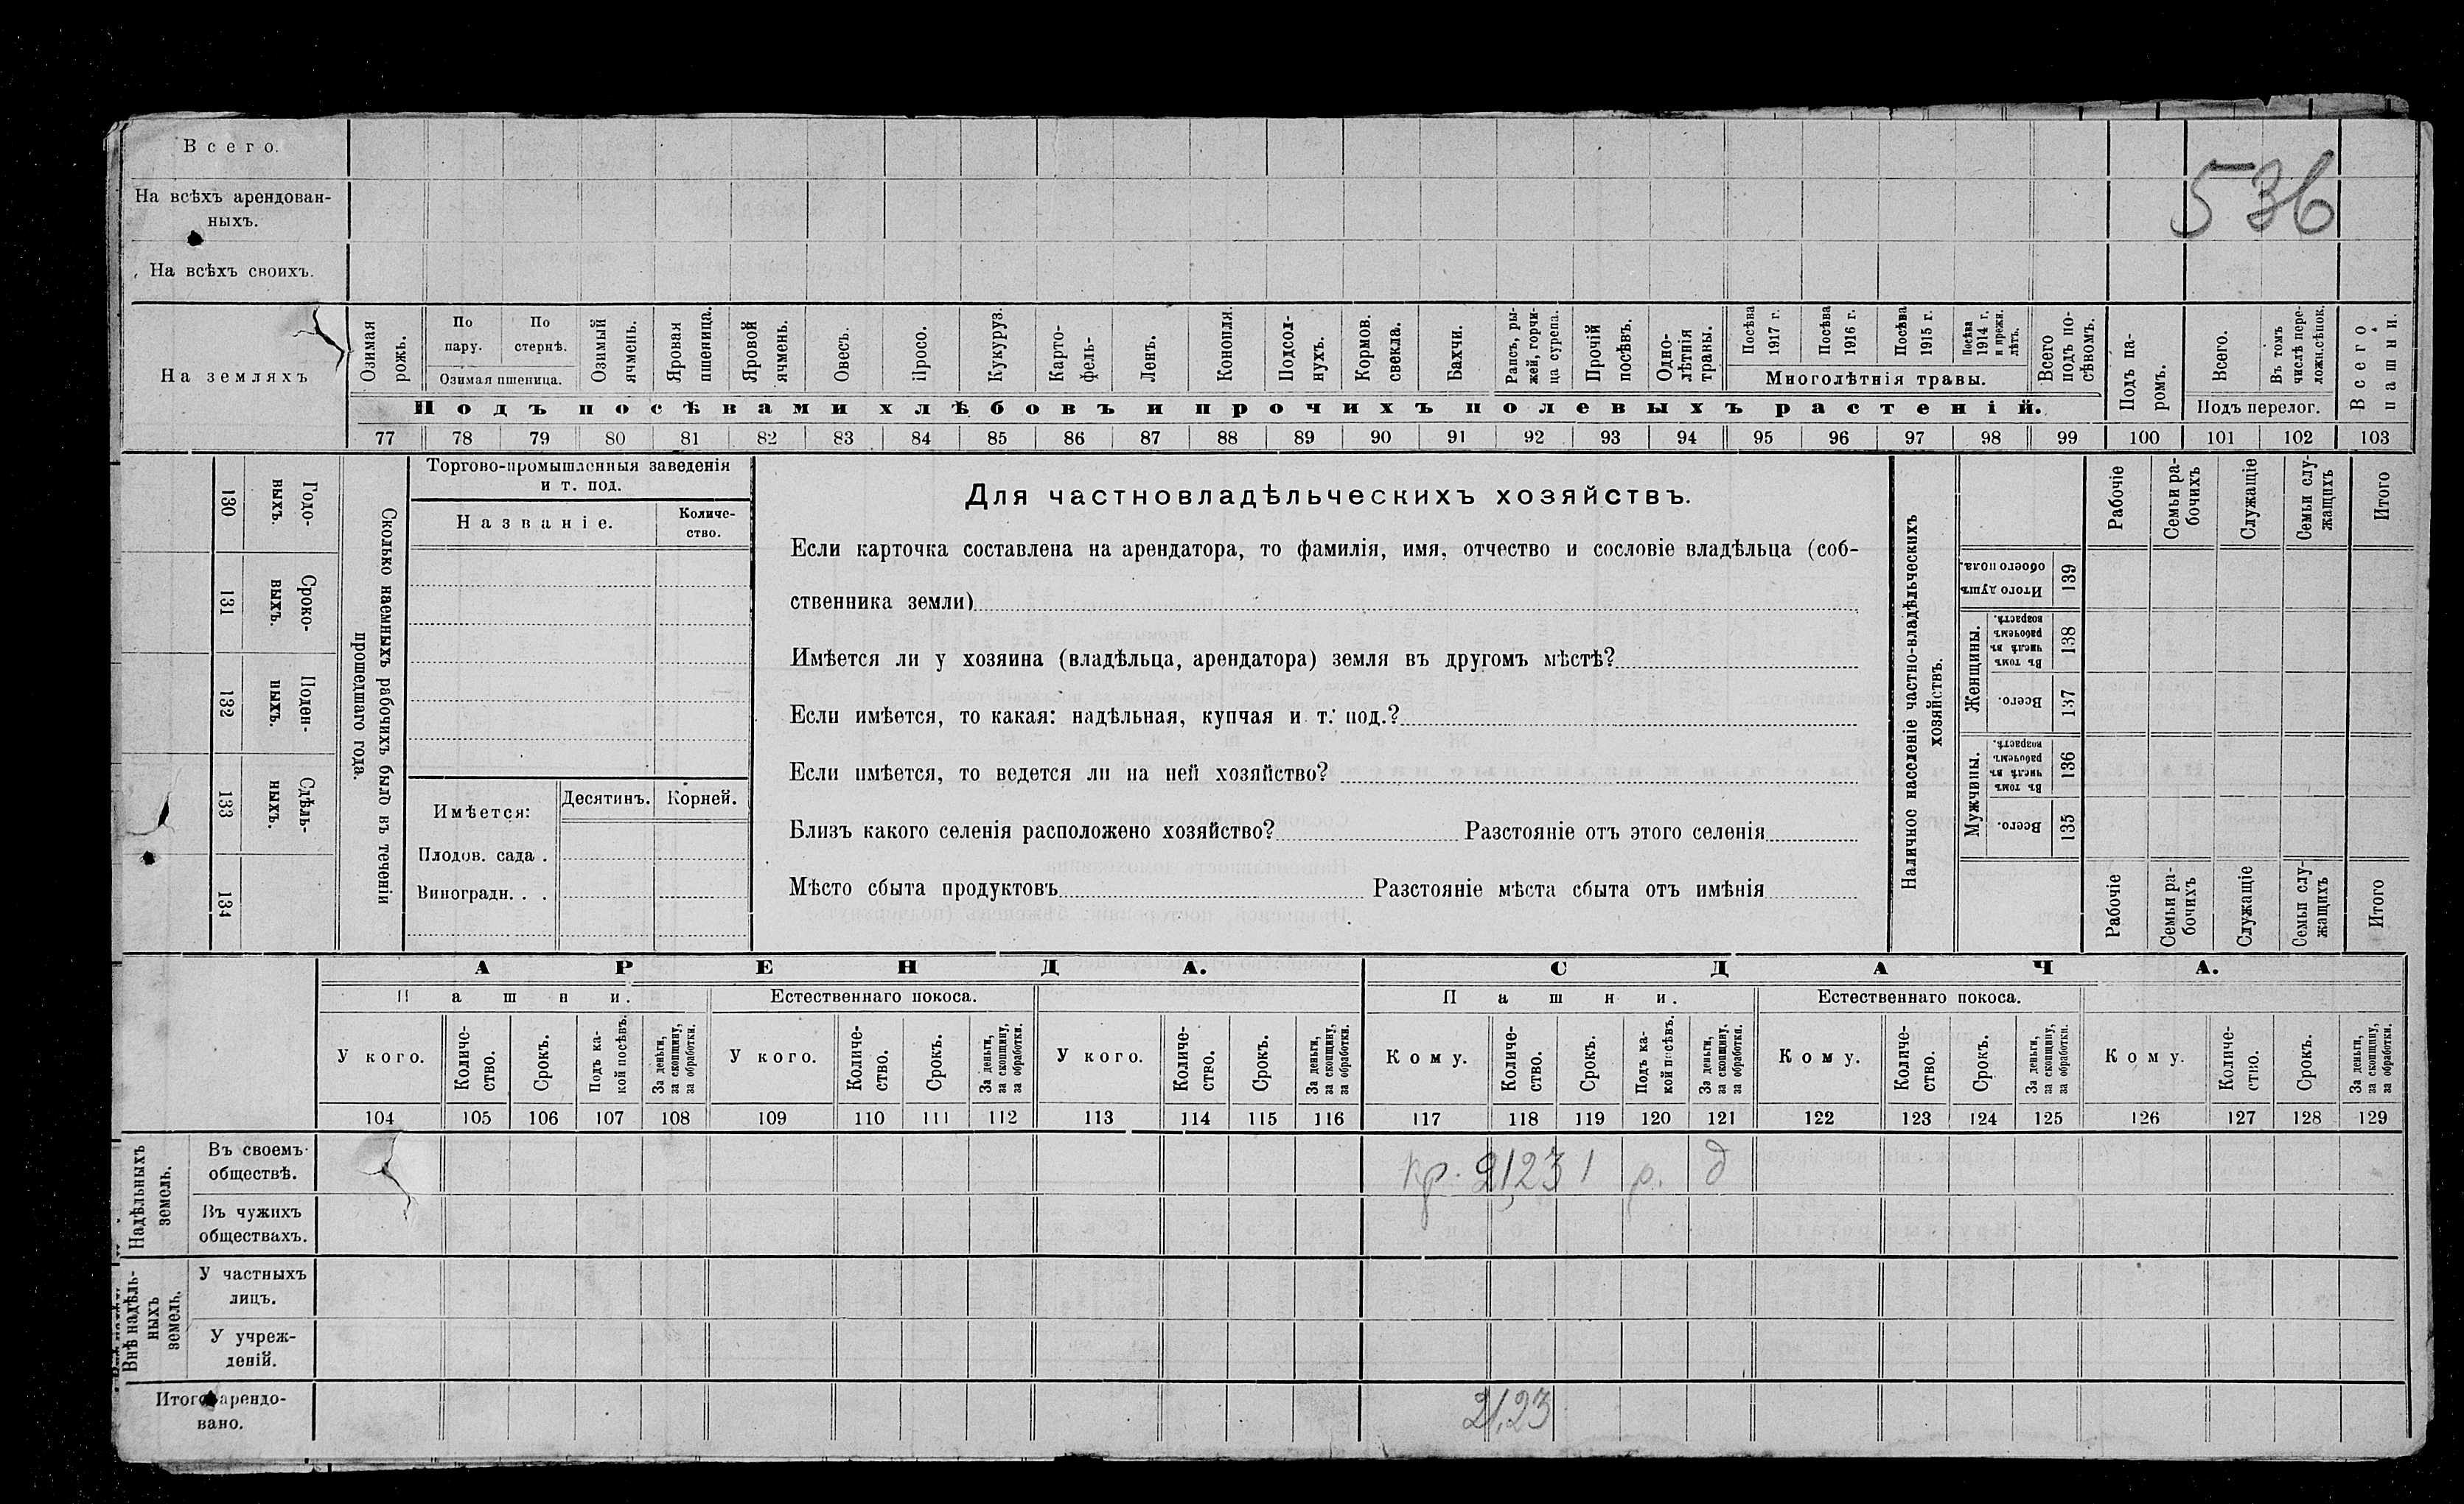 Всего.
На всѣхъ арендован-
ныхъ.
536
На всѣхъ своихъ.
На земляхъ
Озимая рожь.
По пару.
По стернѣ.
Озимая пшеница.
Озимый ячмень.
Яровая пшеница.
Яровой ячмень.
Овесъ.
Просо.
Кукуруз.
Карто-
фель-
Ленъ.
Конопля.
Подсол-
нухъ.
Кормов.
свекла.
Бахчи.
Рапсъ, ры-
жей, горчи-
ца сурепа.
Прочій
посѣвъ.
Одно-
лѣтнія
травы.
Посѣва
1917 г.
Посѣва
1916 г.
Посѣва
1915 г.
Посѣва
1914 г.
и прежн.
лѣтъ.
Многолѣтнія травы.
Всего
подъ по-
сѣвомъ.
Подъ посѣвами хлѣбовъ и прочихъ полевыхъ растеній.
Подъ па-
ромъ.
Всего.
Въ томъ
числѣ пере-
ложн.сѣнок.
Подъ перелог.
Всего
пашни.
77 78 79 80 81 82 83 84 85 86 87 88 89 90 91 92 93 94 95 96 97 98 99 100 101 102 103
Сколько наемныхъ рабочихъ было въ теченіи
прошедшаго года.
Годо-
выхъ.
130
Сроко-
выхъ.
131
Поден-
ныхъ.
132
Сдѣль-
ныхъ.
133
134
Торгово-промышленныя заведенія
и т. под.
Названіе.
Количе-
ство.
Имѣется:
Десятинъ.
Корней.
Плодов. сада .
Виноградн. . .
Для частновладѣльческихъ хозяйствъ.
Если карточка составлена на арендатора, то фамилія, имя, отчество и сословіе владѣльца (соб-
ственника земли)
Имѣется ли у хозяина (владѣльца, арендатора) земля въ другомъ мѣстѣ?
Если имѣется, то какая: надѣльная, купчая и т. под.?
Если имѣется, то ведется ли на ней хозяйство?
Близъ какого селенія расположено хозяйство? Разстояніе отъ этого селенія
Мѣсто сбыта продуктовъ Разстояніе мѣста сбыта отъ имѣнія
Наличное населеніе частно-владѣльческихъ
хозяйствъ.
Рабочіе
Семьи ра-
бочихъ
Служащіе
Семьи слу-
жащихъ
Итого
Итого душъ
обоего пола.
139
Женщины.
Въ томъ
числѣ въ
рабочемъ
возрастѣ.
138
Всего.
137
Мужчины.
Въ томъ
числѣ въ
рабочемъ
возрастѣ.
136
Всего.
135
Рабочіе
Семьи ра-
бочихъ
Служащіе
Семьи слу-
жащихъ
Итого
АРЕНДА.
СДАЧА.
Пашни.
Естественнаго покоса.
Пашни.
Естественнаго покоса.
У кого.
Количе-
ство.
Срокъ.
Подъ ка-
кой посѣвъ.
За деньги,
за скопщину,
за обработки.
У кого.
Количе-
ство.
Срокъ.
За деньги,
за скопщину,
за обработки.
У кого.
Количе-
ство.
Срокъ.
За деньги,
за скопщину,
за обработки.
Кому.
Количе-
ство.
Срокъ.
Подъ ка-
кой посѣвъ.
За деньги,
за скопщину,
за обработки.
Кому.
Количе-
ство.
Срокъ.
За деньги,
за скопщину,
за обработки.
Кому.
Количе-
ство.
Срокъ.
За деньги,
за скопщину,
за обработки.
104 105 106 107 108 109 110 111 112 113 114 115 116 117 118 119 120 121 122 123 124 125 126 127 128 129
Надѣльныхъ
земель.
Въ своемъ
обществѣ.
кр. 21,23 1 р. д
Въ чужихъ
обществахъ.
Внѣ надѣль-
ныхъ
земель.
У частныхъ
лицъ.
У учреж-
деній.
Итого арендо-
вано.
21,23